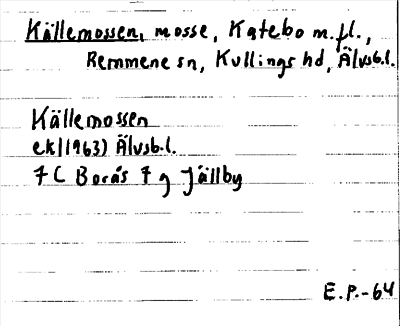 Källemossen, mosse, Katebo m.fl.,
Remmene sn, Kullings hd, Älvsb.l.
Källemossen
ek/(1963) Älvsb.l.
7 C Borås 7 g Jällby
E.P.-64